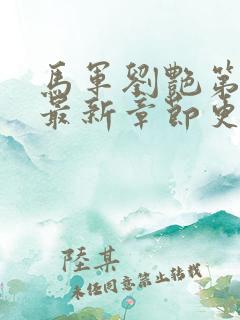 馬軍劉艷第
最新章節免
陸某
未經同意禁止轉載